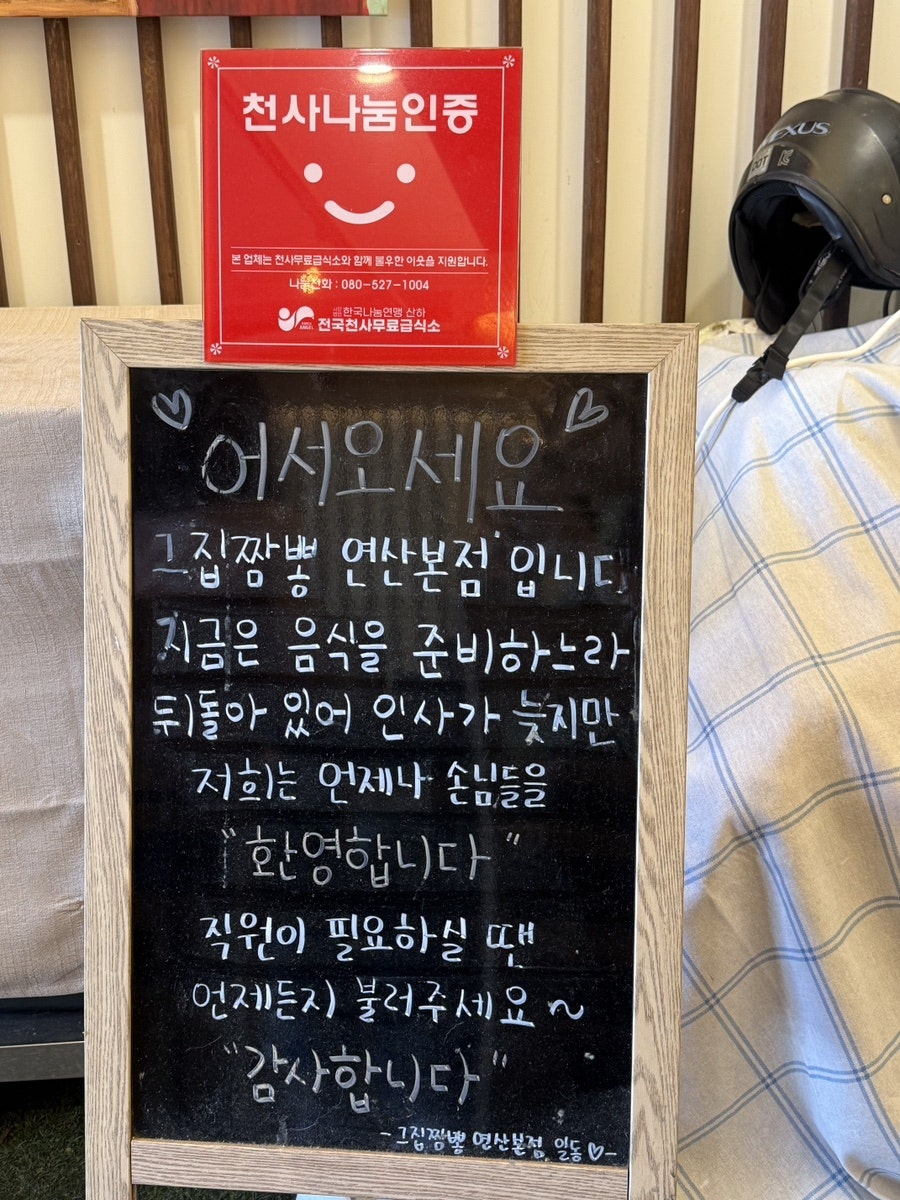 천사나눔인증
본 업체는 천사무료급식소와 함께 불우한 이웃을 지원합니다.
나눔전화 : 080-527-1004
한국나눔연맹 산하
전국천사무료급식소
ANGEL
어서오세요
그집짬뽕 연산본점 입니다
지금은 음식을 준비하느라
뒤돌아 있어 인사가 늦지만
저희는 언제나 손님들을
"환영합니다"
직원이 필요하실 땐
언제든지 불러주세요~
"감사합니다"
-그집짬뽕 연산본점 일동♡-